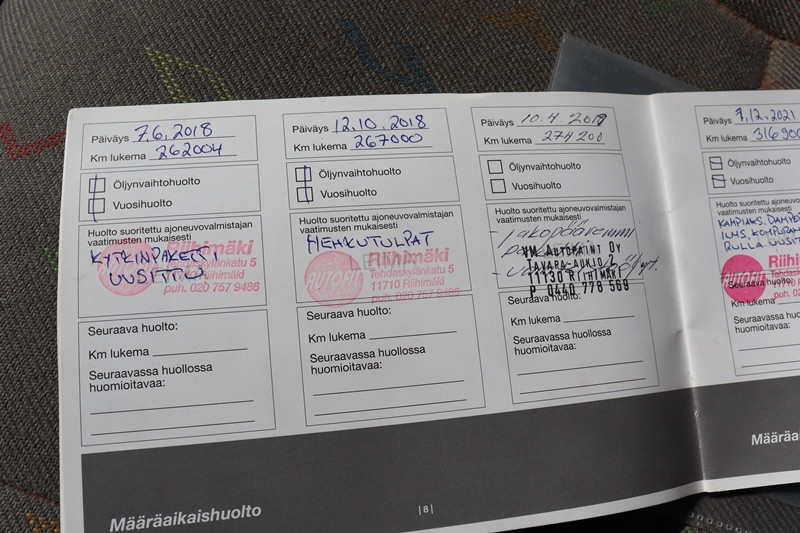 Päiväys 7.6.2018
Km lukema 262004
Öljynvaihtohuolto
Vuosihuolto
Huolto suoritettu ajoneuvovalmistajan
vaatimusten mukaisesti
KYTKINPAKETTI
UUSITTU
AUTOFIT
Riihimäki
Tehdaskylänkatu 5
Riihimäki
puh. 020 757 9486
Seuraava huolto:
Km lukema
Seuraavassa huollossa
huomioitavaa:
Päiväys 12.10.2018
Km lukema 267000
Öljynvaihtohuolto
Vuosihuolto
Huolto suoritettu ajoneuvovalmistajan
vaatimusten mukaisesti
HEHKUTULPAT
AUTOFIT
Riihimäki
Tehdaskylänkatu 5
11710 Riihimäki
puh. 020 757 9486
Seuraava huolto:
Km lukema
Seuraavassa huollossa
huomioitavaa:
Päiväys 10.4.2019
Km lukema 274200
Öljynvaihtohuolto
Vuosihuolto
Huolto suoritettu ajoneuvovalmistajan
vaatimusten mukaisesti
VM AUTOPAINT OY
TAVARA-AUKIO 2
11130 RIIHIMÄKI
P 0440 778 569
Seuraava huolto:
Km lukema
Seuraavassa huollossa
huomioitavaa:
Päiväys 7.12.2021
Km lukema 316900
Öljynvaihtohuolto
Vuosihuolto
Huolto suoritettu
vaatimusten mukaisesti
AUTOFIT
Riihi
Tehdas
puh. 0
Seuraava huolto:
Km lukema
Seuraavassa huollossa
huomioitavaa:
Määräaikaishuolto
|8|
Määräai